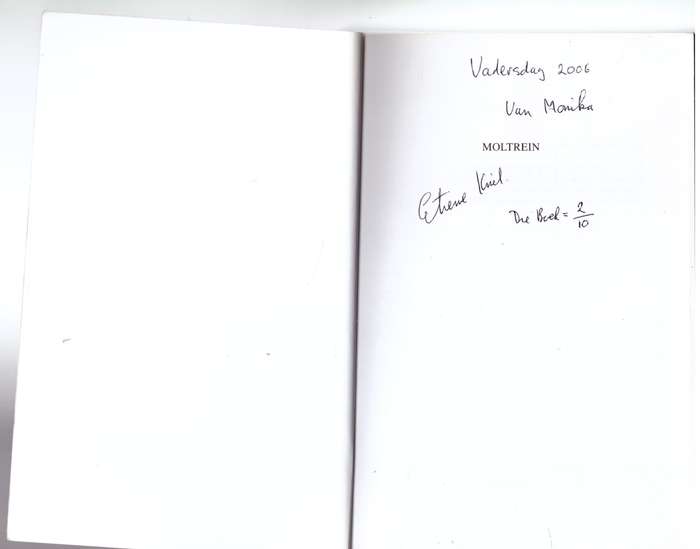 Vadersdag 2006
Van Monika
MOLTREIN
Etienne Kriel.
Die Boek = 2/10